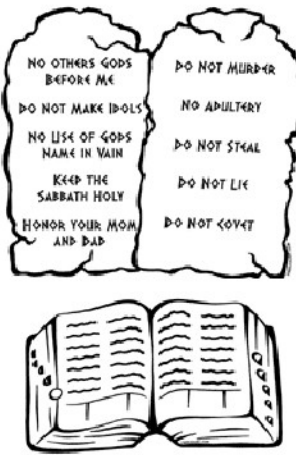 NO OTHERS GODS
BEFORE ME
DO NOT MAKE IDOLS
NO USE OF GODS
NAME IN VAIN
KEEP THE
SABBATH HOLY
HONOR YOUR MOM
AND DAD
DO NOT MURDER
NO ADULTERY
DO NOT STEAL
DO NOT LIE
DO NOT COVET